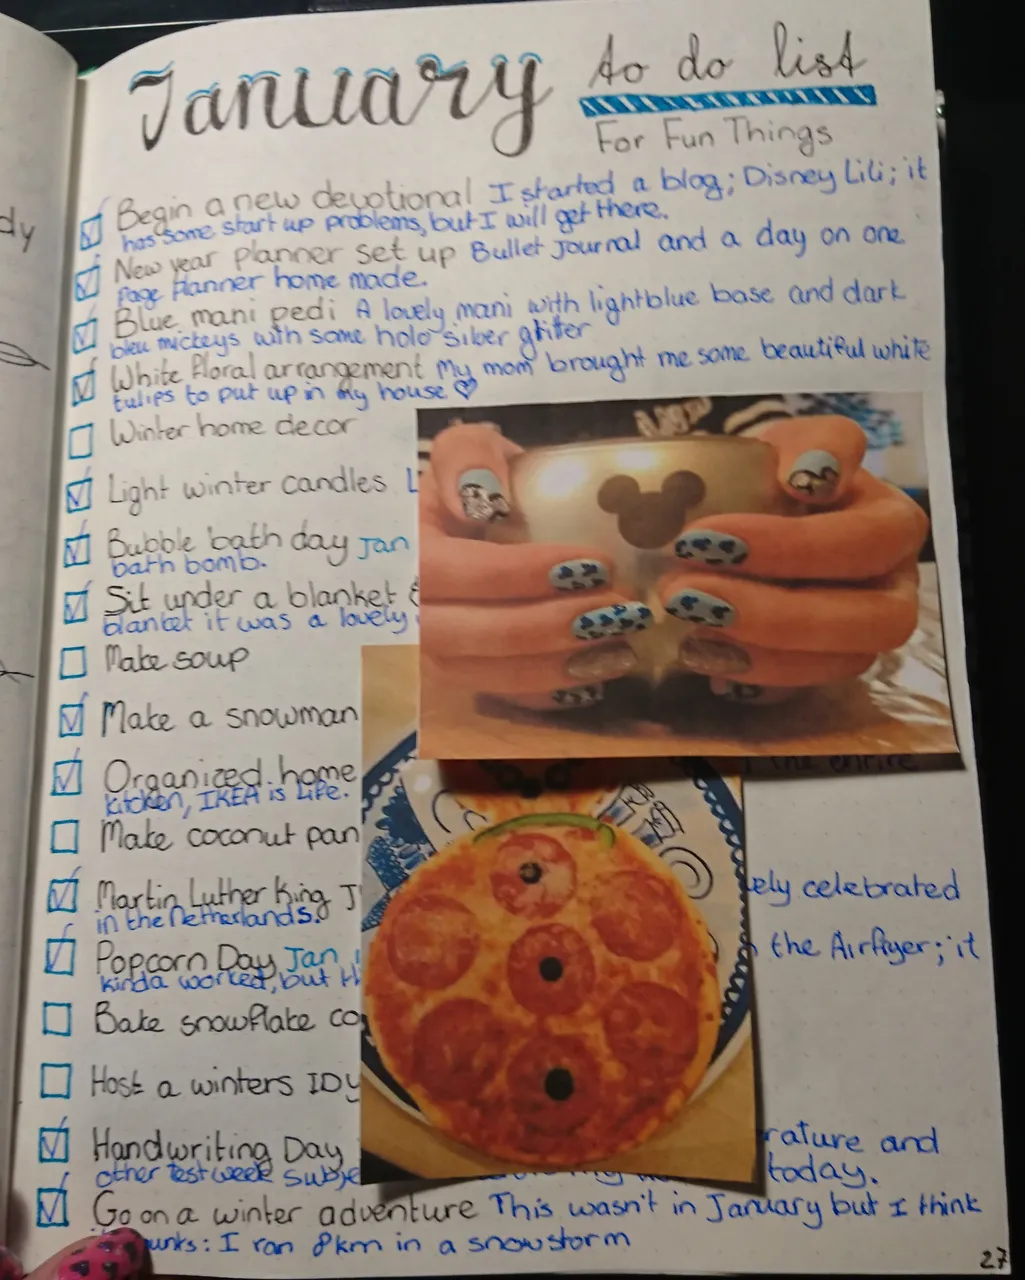 dy
January to do list
For Fun Things
Begin a new devotional I started a blog; Disney Lili; it
has some start up problems, but I will get there.
New year planner set up Bullet Journal and a day on one
page planner home made.
Blue mani pedi A lovely mani with lightblue base and dark
bleu mickeys with some holo silber glitter
White floral arrangement My mom brought me some beautiful white
tulips to put up in my house ♡
Winter home decor
Light winter candles
Bubble bath day Jan
bath bomb.
Sit under a blanket &
blanket it was a lovely
Make soup
Make a snowman
Organiced home
the entire
kitchen, IKEA is Life.
Make coconut pan
Martin Luther King J
ely celebrated
in the Netherlands.
Popcorn Day Jan
the Airfryer; it
kinda worked, but
Bake snowflake co
Host a winters IDY
Handwriting Day
rature and
other testweek subje
today.
Go on a winter adventure This wasn't in January but I think
unks: I ran 8km in a snowstorm
27